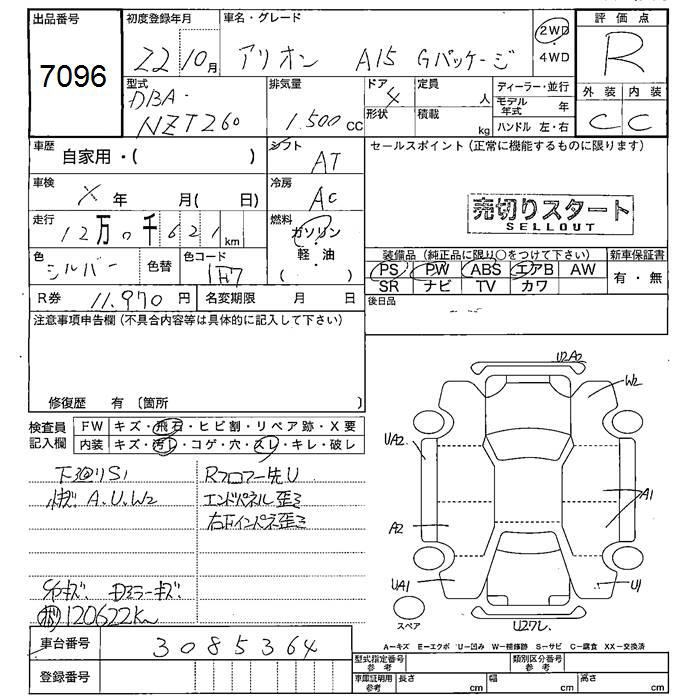 出品番号
7096
初度登録年月
22 10月
車名・グレード
アリオン A15 Gパッケージ
2WD
4WD
評価点
R
型式
DBA-
NZT260
排気量
1.500cc
ドア
4
定員
人
形状
積載
kg
ディーラー・並行
モデル年式 年
ハンドル 左・右
外装
内装
C C
車歴
自家用・( )
シフト
AT
セールスポイント(正常に機能するものに限ります)
車検
X 年 月( 日)
冷房
AC
売切りスタート
SELLOUT
走行
12万0千621km
燃料
ガソリン
軽・油
( )
色
シルバー
色替
色コード
1F7
装備品(純正品に限り○をつけて下さい)
新車保証書
PS PW ABS エアB AW
SR ナビ TV カワ
有・無
R券 11,970円
名変期限 月 日
後日品
注意事項申告欄(不具合内容等は具体的に記入して下さい)
修復歴 有(箇所 )
検査員
記入欄
FW キズ・飛石・ヒビ割・リペア跡・X要
内装 キズ・汚レ・コゲ・穴・スレ・キレ・破レ
下廻りS1
Rフロアー先U
A.U.W2
エンドパネル歪ミ
右下インパネ歪ミ
ドアミラーキズ
120622Km
U2A2
W2
UA2
A1
A2
UA1
U1
U27L.
スペア
A-キズ E-エクボ U-凹み W-補修跡 S-サビ C-腐食 XX-交換済
車台番号
3085364
登録番号
型式指定番号
参考
類別区分番号
参考
車庫証明用
参考
長さ cm
幅 cm
高さ cm